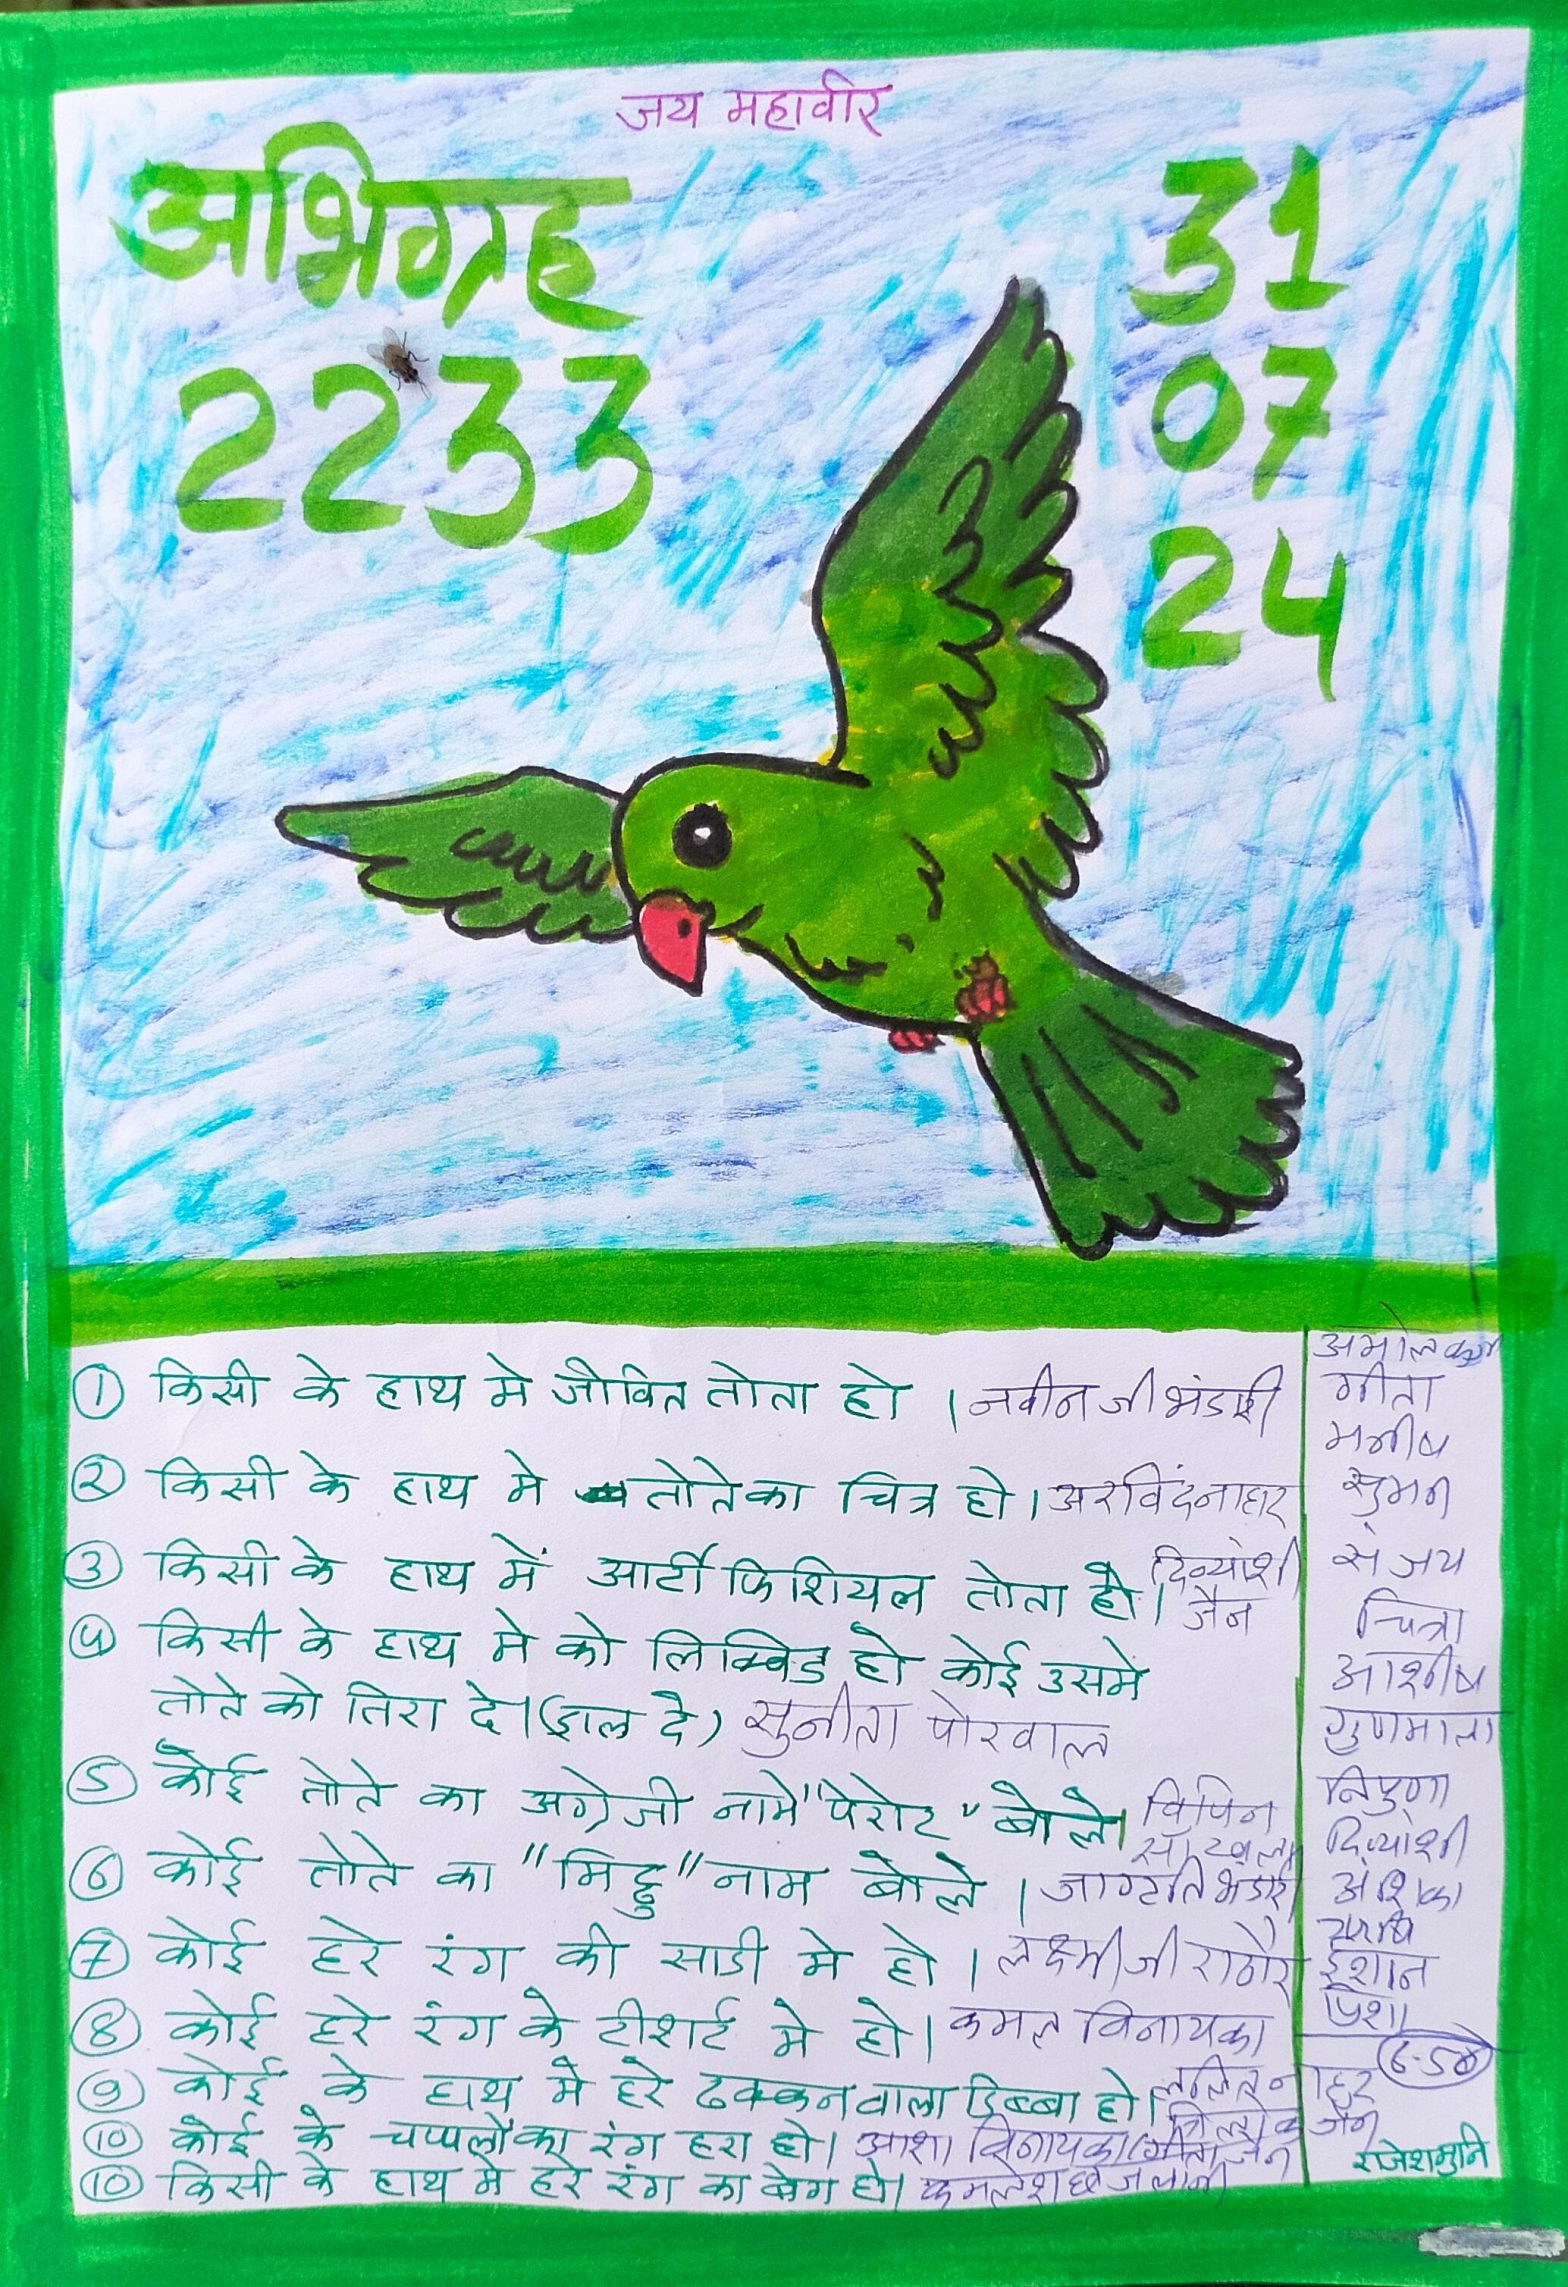 जय महावीर
अभिग्रह
2233
31
07
24
① किसी के हाथ मे जीवित तोता हो । नवीन जी भंडारी
② किसी के हाथ मे तोते का चित्र हो । अरविंद नाहर
③ किसी के हाथ में आर्टीफिशियल तोता हो । दिव्यांशी
जैन
④ किसी के हाथ मे को लिक्विड हो कोई उसमे
तोते को तिरा दे । (डाल दे) सुनीता पोरवाल
⑤ कोई तोते का अग्रेजी नामे "पेरोट" बोले । विपिन
⑥ कोई तोते का "मिट्ठु" नाम बोले । जाग्रति भंडारी
⑦ कोई हरे रंग की साडी मे हो । लक्ष्मी जी राठौर
⑧ कोई हरे रंग के टीशर्ट मे हो । कमल विनायका
⑨ कोई के हाथ मे हरे ढक्कन वाला डिब्बा हो । ललित नाहर
त्रिलोक जैन
⑩ कोई के चप्पलो का रंग हरा हो । आशा विनायका
⑩ किसी के हाथ मे हरे रंग का बेग हो । कमलेश छजलानी
गीता
मनीष
सुमन
संजय
चित्रा
आशीष
गुणमाला
निपुणा
दिव्यांशी
अंशिका
ईशान
राजेशमुनि